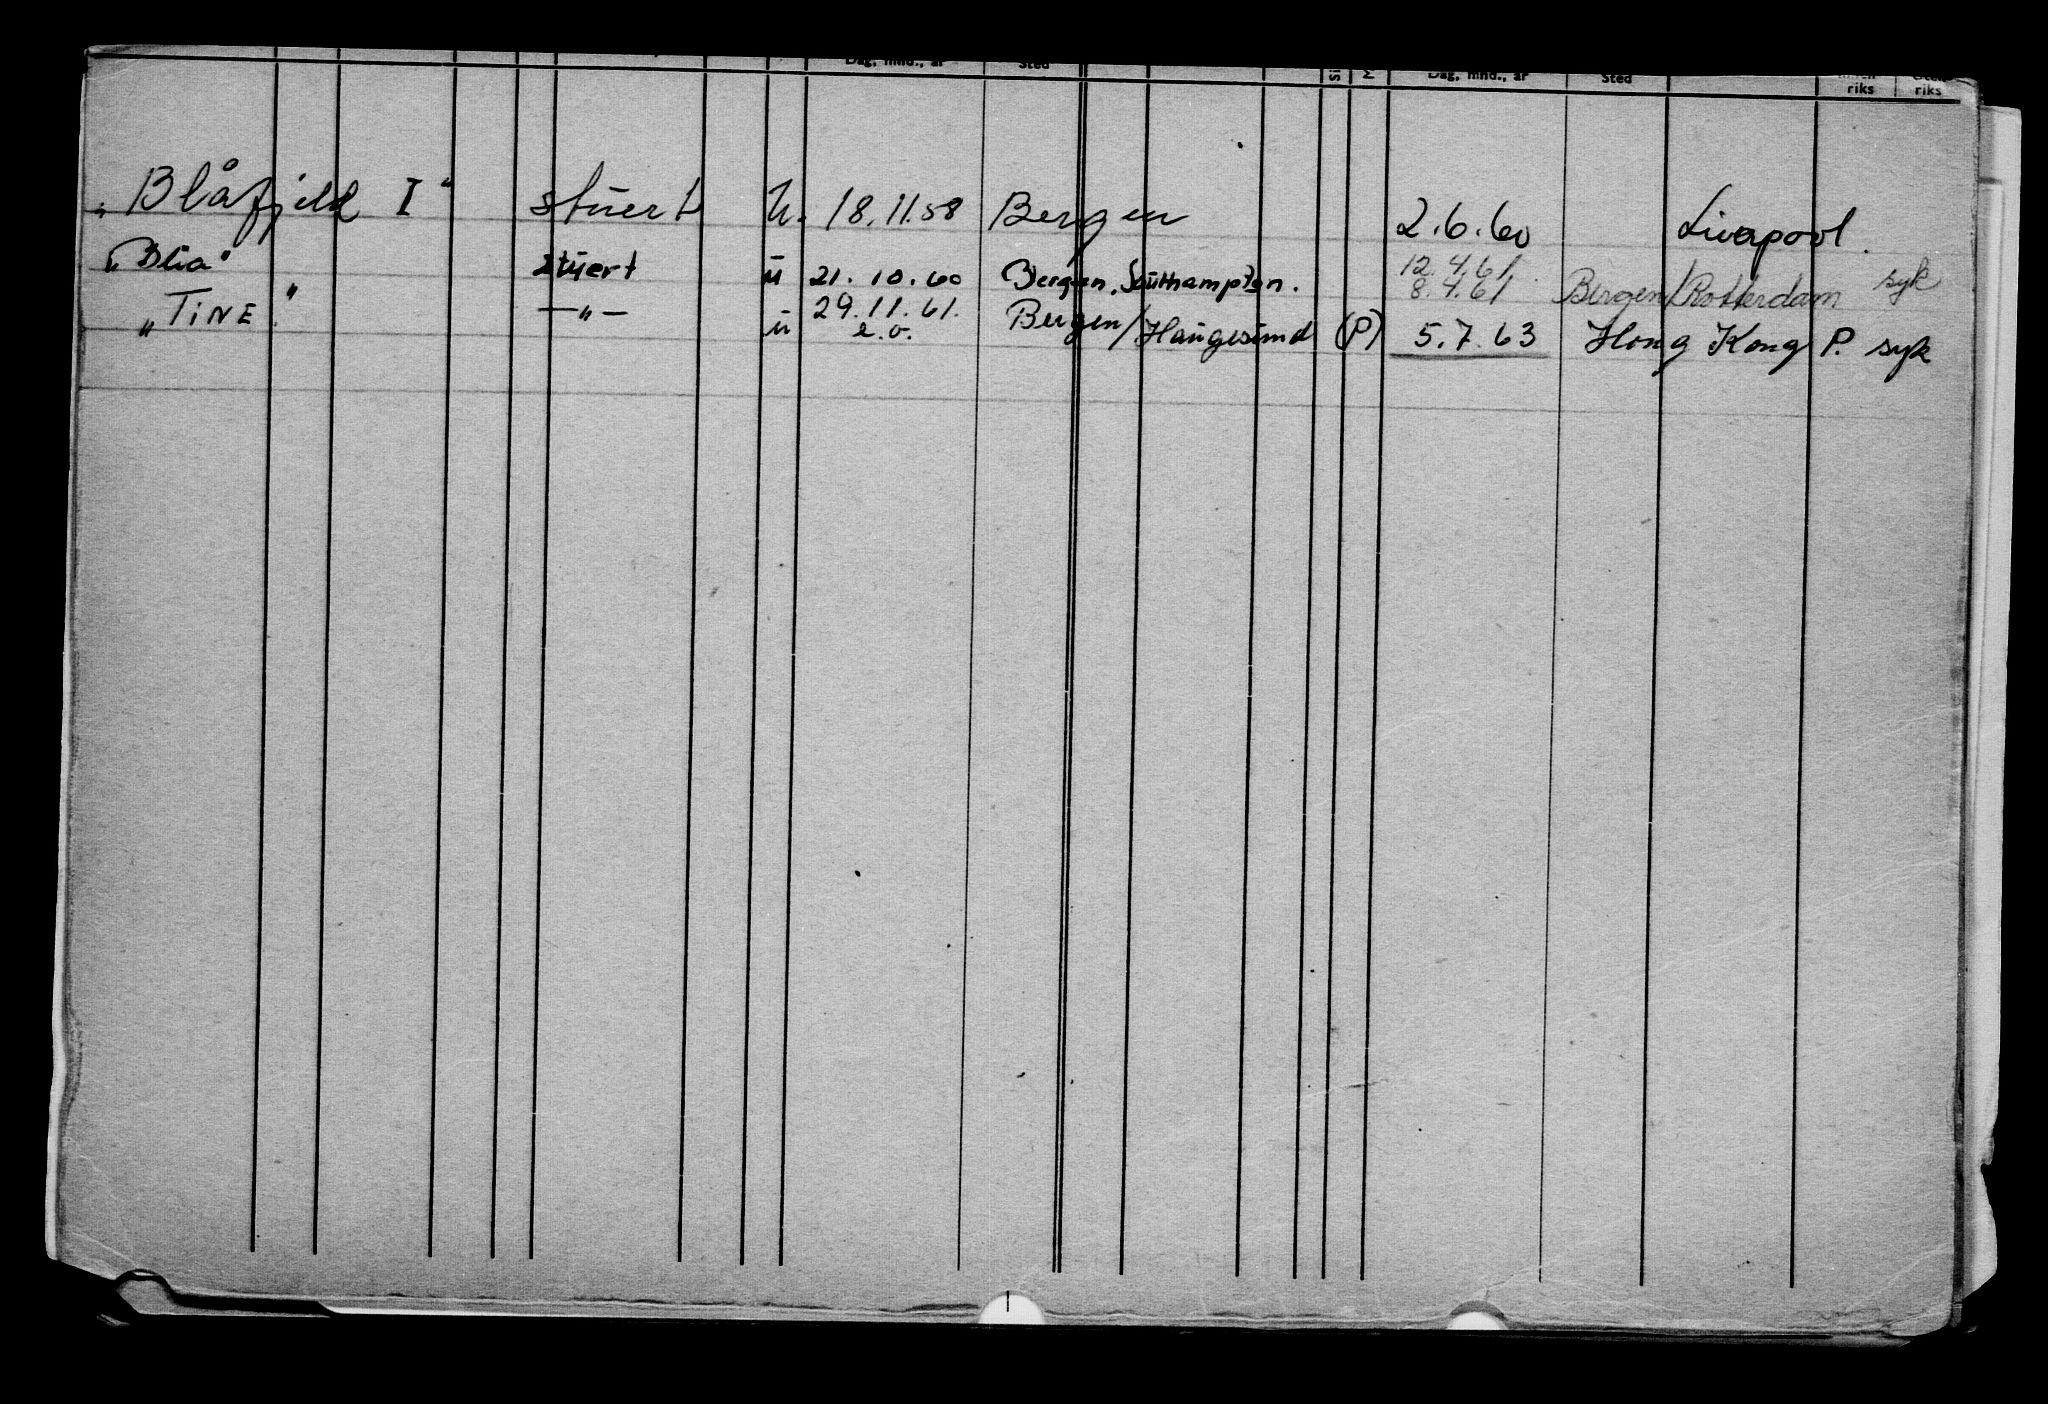 Dag, mnd., år Sted Dag, mnd., år Sted riks riks
„Blåfjeld I" stuert U. 18.11.58 Bergen 2.6.60 Liverpool.
„Blia" stuert u 21.10.60 Bergen, Southampton. 12.4.61. 8.4.61 Bergen/Rotterdam syk
„TINE" —„— u 29.11.61. e.o. Bergen/Haugesund (P) 5.7.63 Hong Kong P. syk